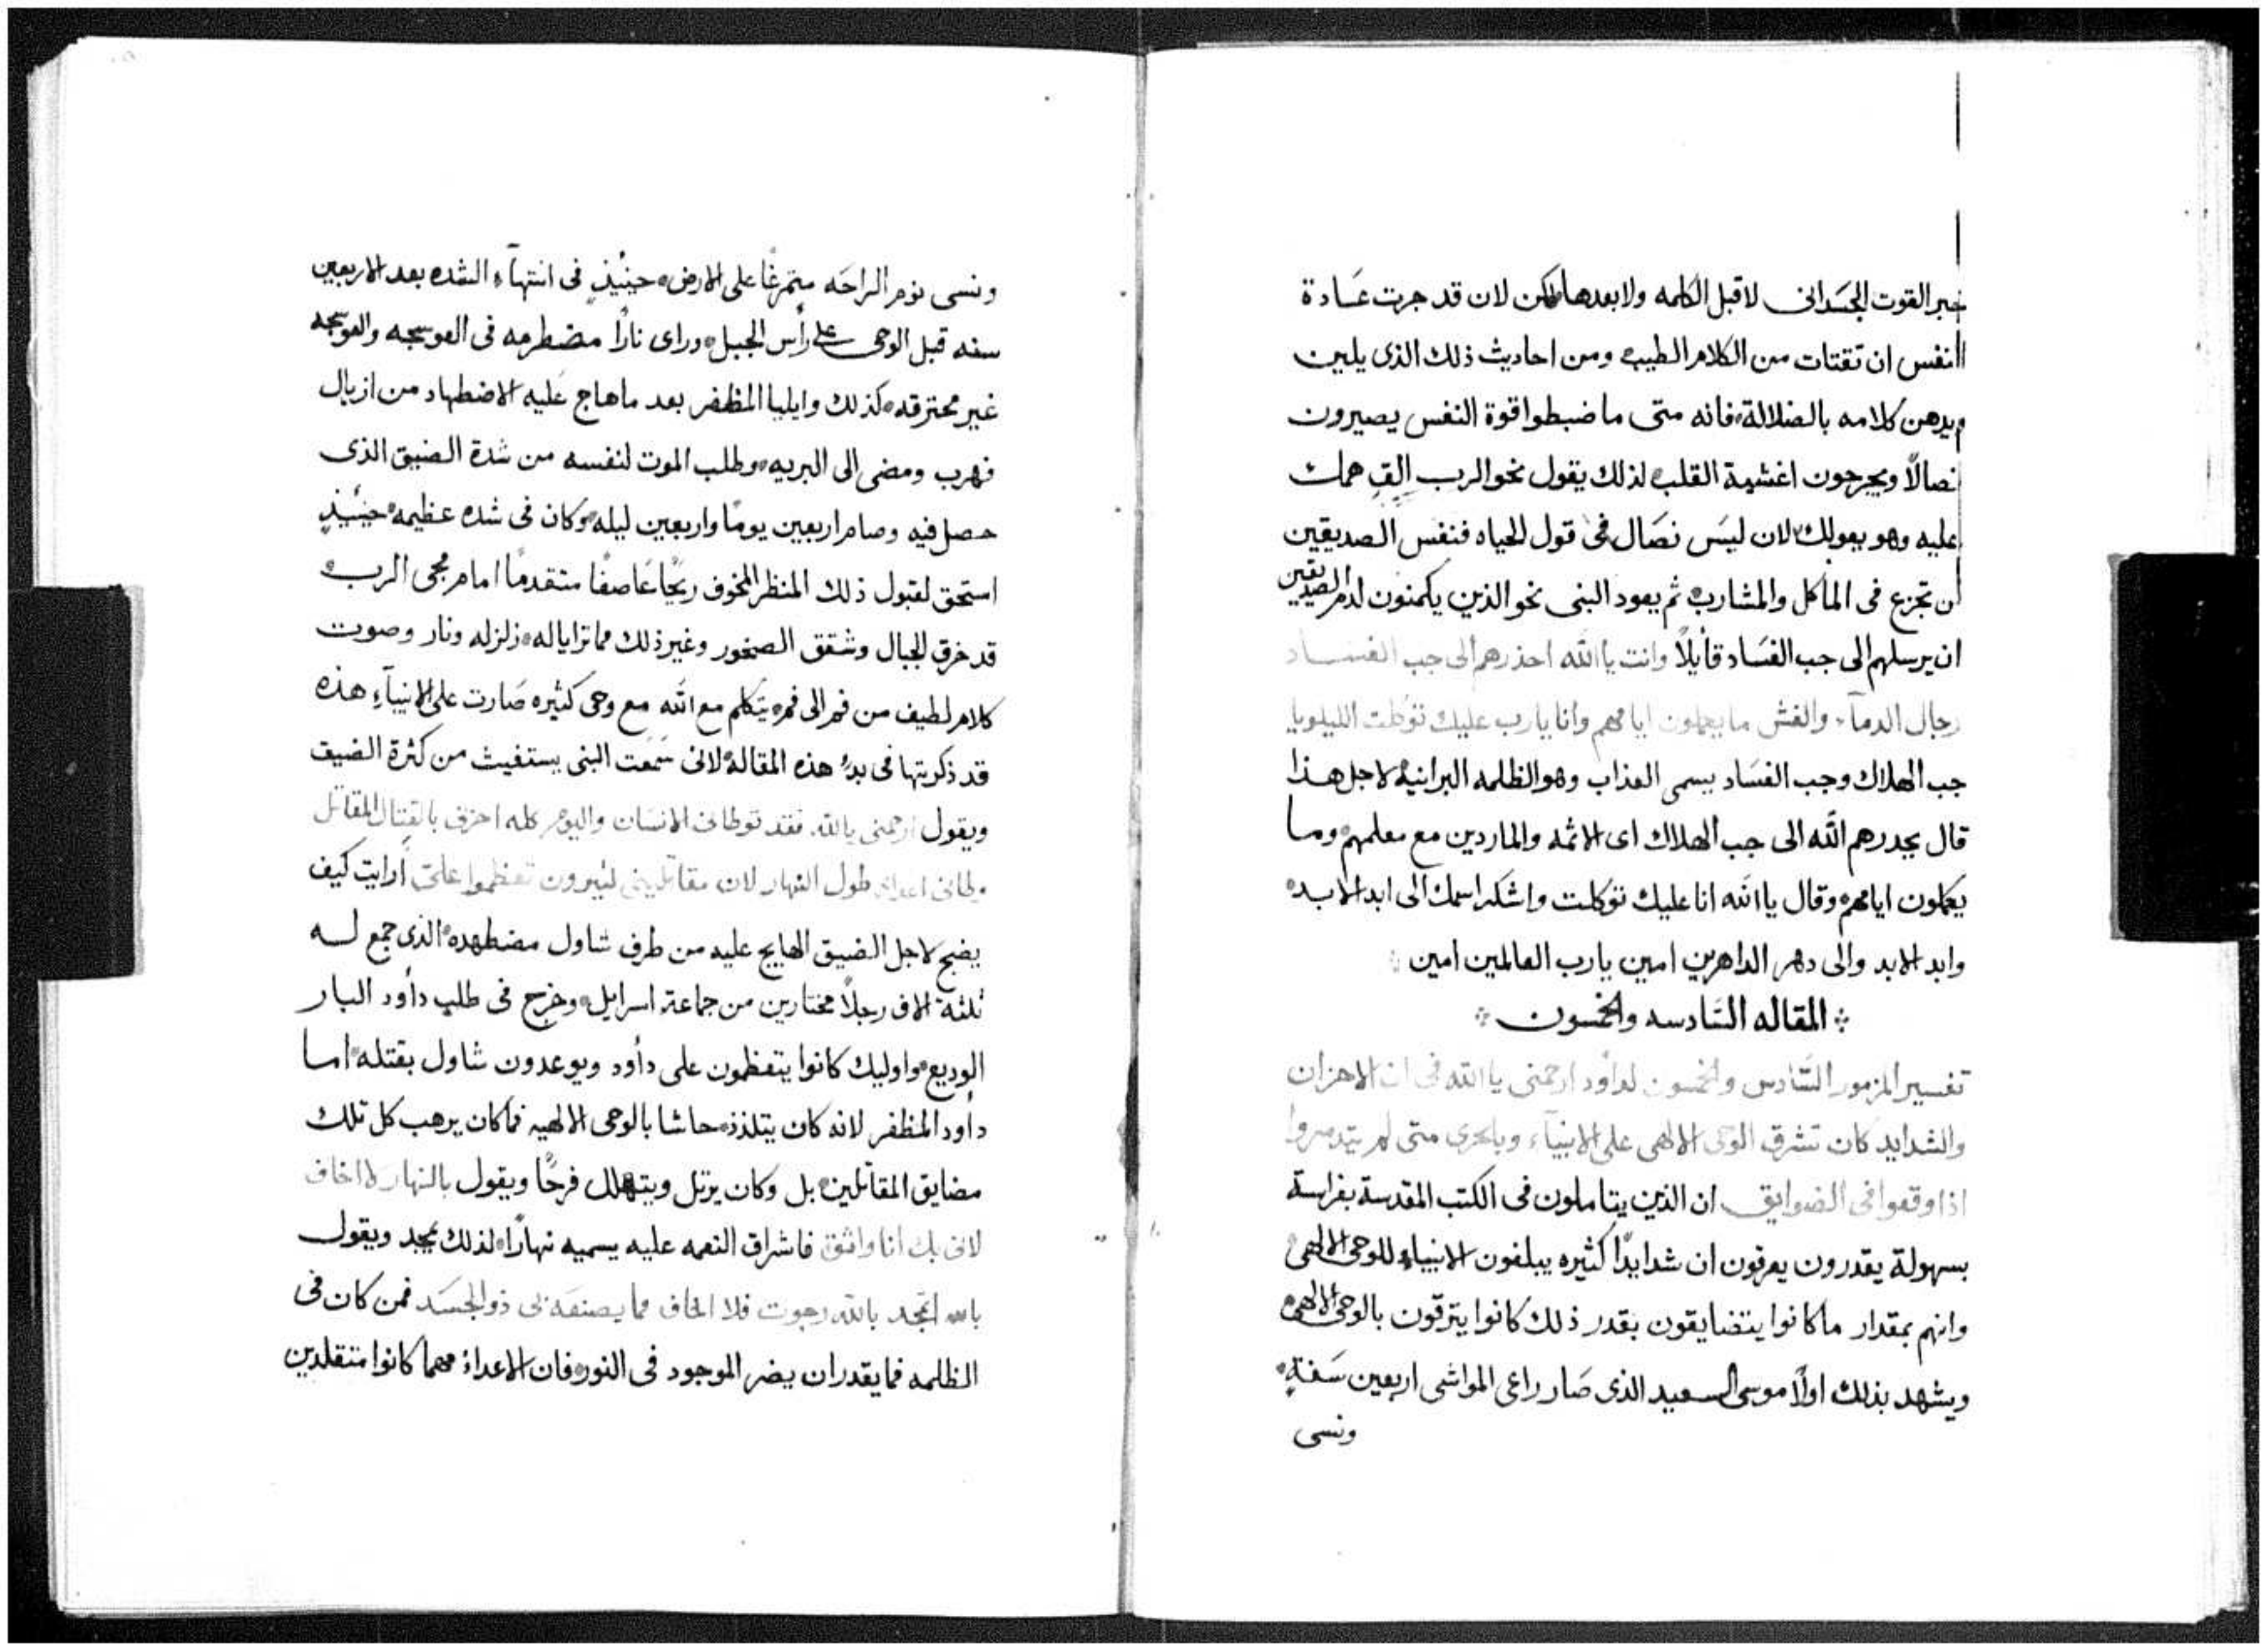 خبر القوت الجسدانى لا قبل الكلمه ولا بعدها لكن لان قد جرت عادة
النفس ان تقتات من الكلام الطيب ومن احاديث ذلك الذى يلين
ويدهن كلامه بالضلالة فانه متى ما ضبطوا قوة النفس يصيرون
نصالاً ويجرحون اغشية القلب لذلك يقول نحو الرب القِ همك
عليه وهو يعولك لان ليس نصال فى قول الحياه فنفس الصديقين
لن تجزع فى الماكل والمشارب ثم يعود النبى نحو الذين يكمنون لدم الصديقين
ان يرسلهم الى جب الفساد قايلاً وانت يا الله احدرهم الى جب الفساد
رجال الدمآء والغش ما يعملون ايامهم وانا يارب عليك توكلت الليلويا
جب الهلاك وجب الفساد يسمى العذاب وهو الظلمه البرانيه لاجل هذا
قال يحدرهم الله الى جب الهلاك اى الاثمه والماردين مع معلمهم وما
يعملون ايامهم وقال يا الله انا عليك توكلت واشكر اسمك الى ابد الابد
وابد الابد والى دهر الداهرين امين يارب العالمين امين
المقاله السادسه والخمسون
تفسير المزمور السادس والخمسون لداود ارحمنى يا الله فى ان الاحزان
والشدايد كان تشرق الوحى الالهى على الانبيآء وبالحرى متى لم يتدمروا
اذا وقعوا فى الضوايق ان الذين يتاملون فى الكتب المقدسة بفراسة
بسهولة يقدرون يعرفون ان شدايدًا كثيره يبلغون الانبياء للوحى الالهى
وانهم بمقدار ما كانوا يتضايقون بقدر ذلك كانوا يترقون بالوحى الالهى
ويشهد بذلك اولاً موسى السعيد الذى صار راعى المواشى اربعين سنة
ونسى
ونسى نوم الراحه متمرغًا على الارض حينيذٍ فى انتهآء الشده بعد الاربعين
سنه قبل الوحى على رأس الجبل وراى نارًا مضطرمه فى العوسجه والعوسجه
غير محترقه كذلك وايليا المظفر بعد ما هاج عليه الاضطهاد من ازبال
فهرب ومضى الى البريه وطلب الموت لنفسه من شدة الضيق الذى
حصل فيه وصام اربعين يومًا واربعين ليله وكان فى شده عظيمه حينيذٍ
استحق لقبول ذلك المنظر المخوف ريحًا عاصفًا متقدمًا امام مجى الرب
قد خرق الجبال وشقق الصخور وغير ذلك مما ترايا له زلزله ونار وصوت
كلام لطيف من فم الى فم يتكلم مع الله مع وحى كثيره صارت على الانبيآء هذه
قد ذكرتها فى بدء هذه المقاله لانى سمعت النبى يستغيث من كثرة الضيق
ويقول ارحمنى يا الله فقد توطانى الانسان واليوم كله احزنى بالقتال المقاتل
وطانى اعداى طول النهار لان مقاتلينى كثيرون تعظموا علىّ أرايت كيف
يضج لاجل الضيق الهايج عليه من طرف شاول مضطهده الذى جمع له
ثلثة الاف رجلاً مختارين من جماعة اسرايل وخرج فى طلب دأود البار
الوديع واوليك كانوا يتعظمون على دأود ويوعدون شاول بقتله اما
داود المظفر لانه كان يتلذذ حاشا بالوحى الالهيه فما كان يرهب كل تلك
مضايق المقاتلين بل وكان يرتل ويتهلل فرحًا ويقول بالنهار لا اخاف
لانى بك انا واثق فاشراق النعمه عليه يسميه نهارًا لذلك يمجد ويقول
بالله امجد بالله رجوت فلا اخاف مما يصنعه بى ذو الجسد فمن كان فى
الظلمه فما يقدر ان يضر الموجود فى النور فان الاعداء مهما كانوا متقلدين